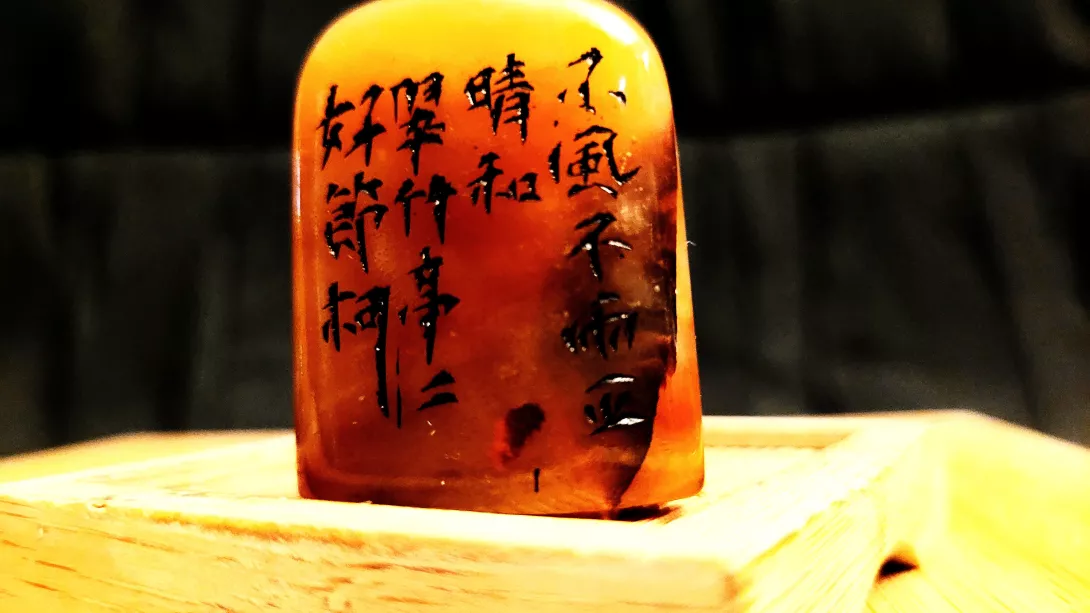 不風不雨正
晴和
翠竹亭亭
好節柯